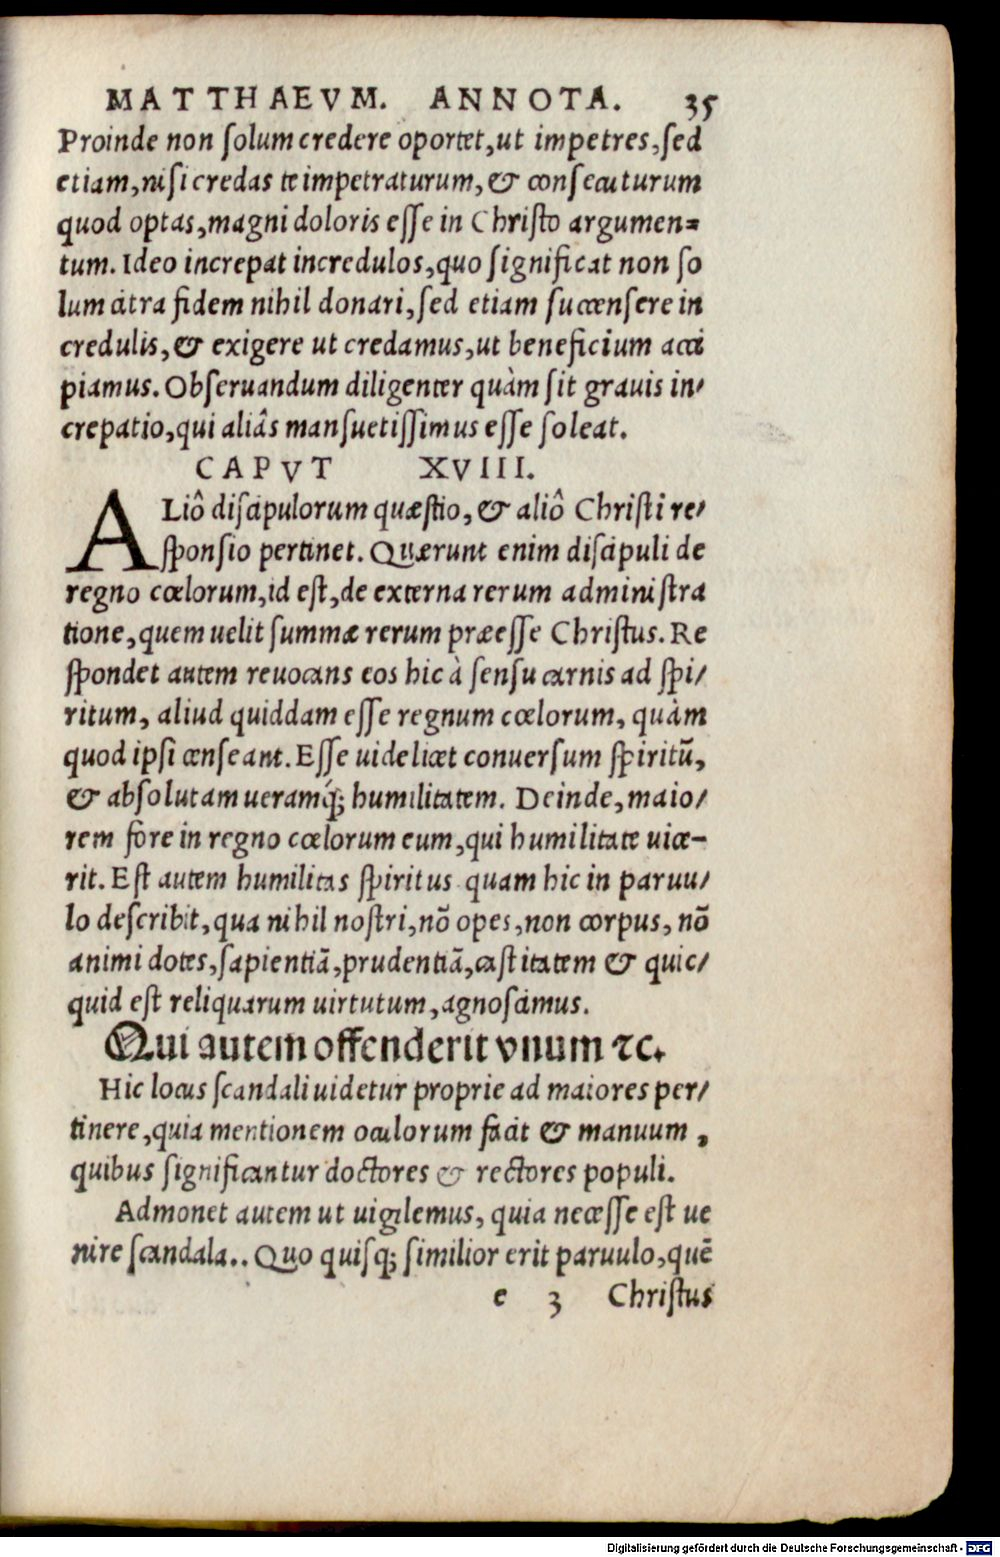 MATTHAEVM. ANNOTA. 35
Proinde non ſolum credere oportet,ut impetres,ſed
etiam,niſi credas te impetraturum,& conſecuturum
quod optas,magni doloris eſſe in Chriſto argumen=
tum. Ideo increpat incredulos,quo ſignificat non ſo
lum citra fidem nihil donari,ſed etiam ſuccenſere in
credulis,& exigere ut credamus,ut beneficium acci
piamus. Obſeruandum diligenter quàm ſit grauis in/
crepatio,qui aliâs manſuetiſſimus eſſe ſoleat.
CAPVT XVIII.
ALiô diſcipulorum quæſtio, & aliô Chriſti re/
ſponſio pertinet. Quærunt enim diſcipuli de
regno cœlorum,id eſt,de externa rerum adminiſtra
tione,quem uelit ſummæ rerum præeſſe Chriſtus. Re
ſpondet autem reuocans eos hic à ſenſu carnis ad ſpi/
ritum, aliud quiddam eſſe regnum cœlorum, quàm
quod ipſi cenſeant. Eſſe uidelicet conuerſum ſpiritũ,
& abſolutam ueramq́; humilitatem. Deinde, maio/
rem fore in regno cœlorum eum,qui humilitate uice-
rit. Eſt autem humilitas ſpiritus quam hic in paruu/
lo deſcribit,qua nihil noſtri,nõ opes,non corpus, nõ
animi dotes,ſapientiã,prudentiã,caſtitatem & quic/
quid eſt reliquarum uirtutum,agnoſcimus.
Qui autem offenderit vnum ⁊c.
Hic locus ſcandali uidetur proprie ad maiores per/
tinere,quia mentionem oculorum facit & manuum ,
quibus ſignificantur doctores & rectores populi.
Admonet autem ut uigilemus, quia neceſſe eſt ue
nire ſcandala.. Quo quiſq; ſimilior erit paruulo,quẽ
e 3 Chriſtus
Digitalisierung gefördert durch die Deutsche Forschungsgemeinschaft - DFG